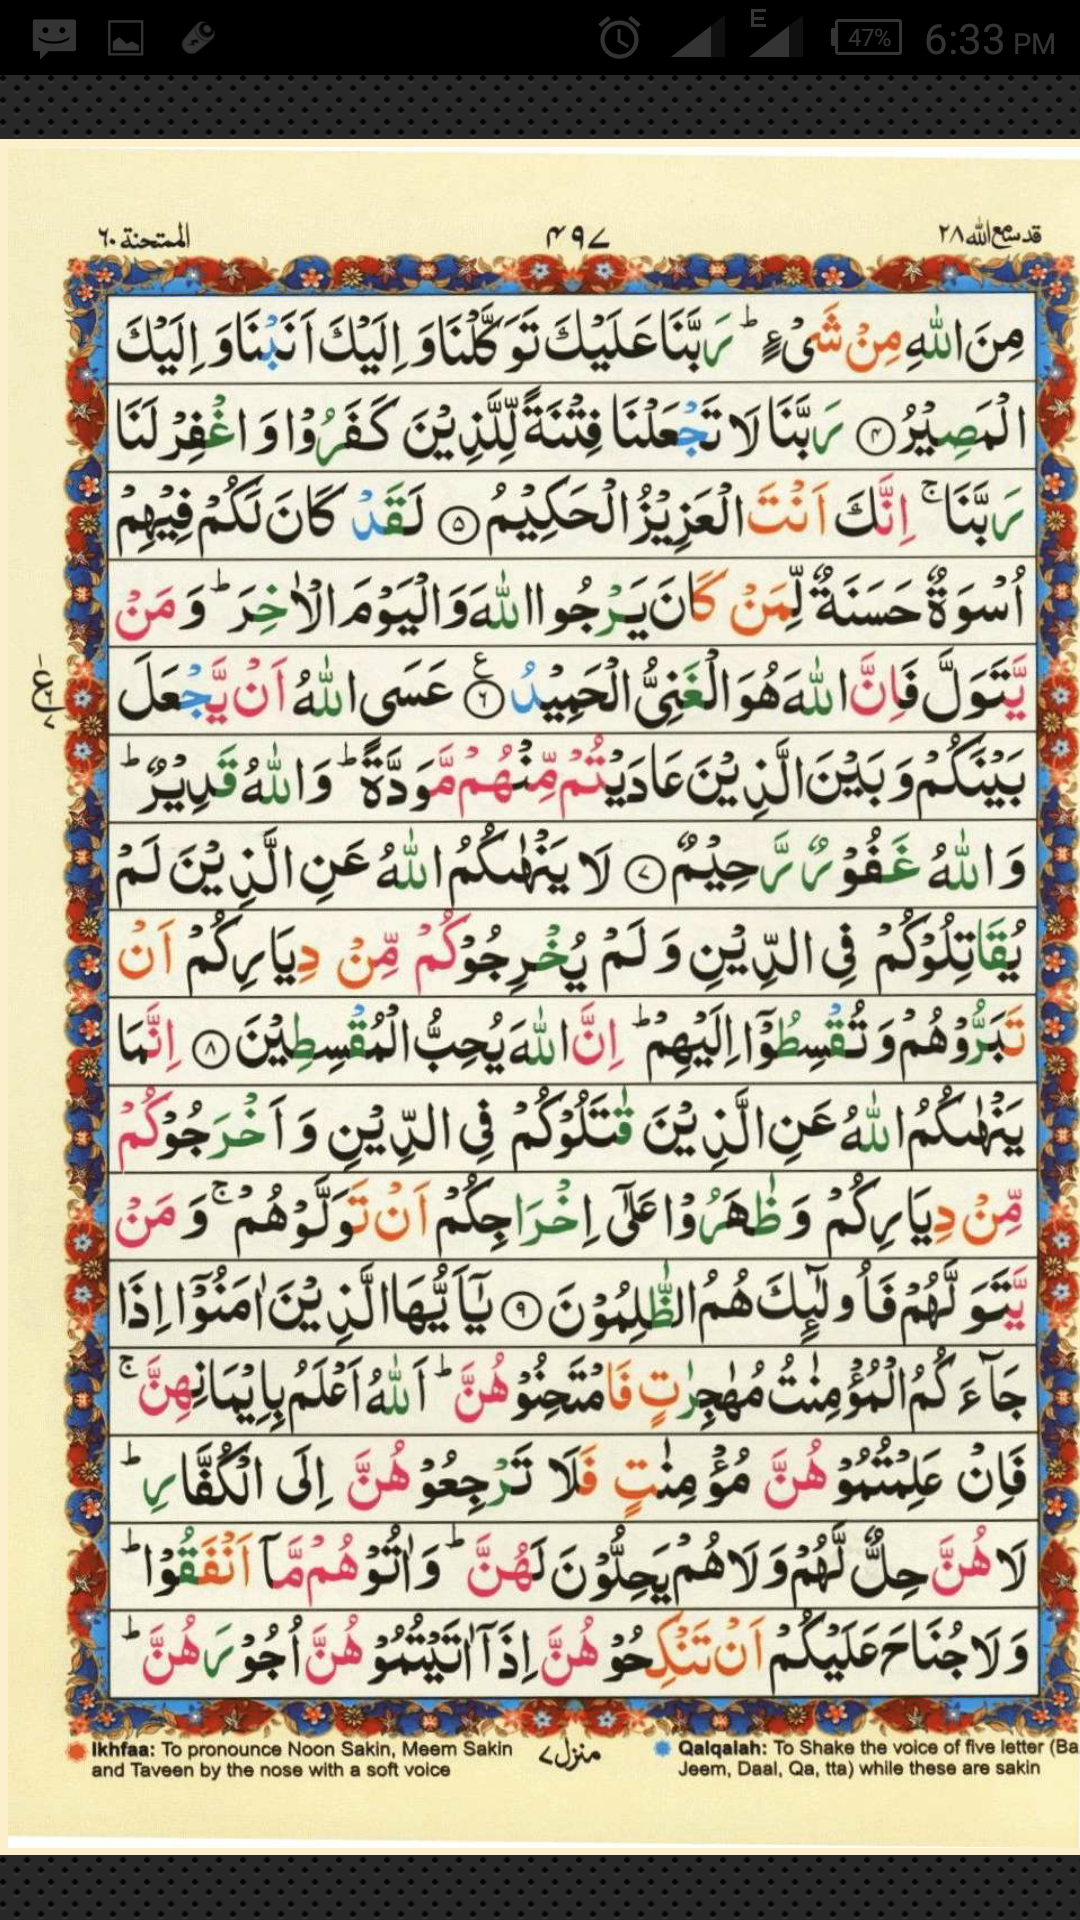 E 47% 6:33 PM
قد سمع الله ٢٨ ٤٩٧ الممتحنة ٦٠
مِنَ اللّٰهِ مِنْ شَیْءٍ ؕ رَبَّنَا عَلَیْكَ تَوَكَّلْنَا وَ اِلَیْكَ اَنَبْنَا وَ اِلَیْكَ
الْمَصِیْرُ ﴿۴﴾ رَبَّنَا لَا تَجْعَلْنَا فِتْنَةً لِّلَّذِیْنَ كَفَرُوْا وَ اغْفِرْ لَنَا
رَبَّنَا ۚ اِنَّكَ اَنْتَ الْعَزِیْزُ الْحَكِیْمُ ﴿۵﴾ لَقَدْ كَانَ لَكُمْ فِیْهِمْ
اُسْوَةٌ حَسَنَةٌ لِّمَنْ كَانَ یَرْجُوا اللّٰهَ وَ الْیَوْمَ الْاٰخِرَ ؕ وَ مَنْ
یَّتَوَلَّ فَاِنَّ اللّٰهَ هُوَ الْغَنِیُّ الْحَمِیْدُ ﴿۶﴾ ع عَسَی اللّٰهُ اَنْ یَّجْعَلَ
بَیْنَكُمْ وَ بَیْنَ الَّذِیْنَ عَادَیْتُمْ مِّنْهُمْ مَّوَدَّةً ؕ وَ اللّٰهُ قَدِیْرٌ ؕ
وَ اللّٰهُ غَفُوْرٌ رَّحِیْمٌ ﴿۷﴾ لَا یَنْهٰىكُمُ اللّٰهُ عَنِ الَّذِیْنَ لَمْ
یُقَاتِلُوْكُمْ فِی الدِّیْنِ وَ لَمْ یُخْرِجُوْكُمْ مِّنْ دِیَارِكُمْ اَنْ
تَبَرُّوْهُمْ وَ تُقْسِطُوْۤا اِلَیْهِمْ ؕ اِنَّ اللّٰهَ یُحِبُّ الْمُقْسِطِیْنَ ﴿۸﴾ اِنَّمَا
یَنْهٰىكُمُ اللّٰهُ عَنِ الَّذِیْنَ قٰتَلُوْكُمْ فِی الدِّیْنِ وَ اَخْرَجُوْكُمْ
مِّنْ دِیَارِكُمْ وَ ظٰهَرُوْا عَلٰۤی اِخْرَاجِكُمْ اَنْ تَوَلَّوْهُمْ ۚ وَ مَنْ
یَّتَوَلَّهُمْ فَاُولٰٓىِٕكَ هُمُ الظّٰلِمُوْنَ ﴿۹﴾ یٰۤاَیُّهَا الَّذِیْنَ اٰمَنُوْۤا اِذَا
جَآءَكُمُ الْمُؤْمِنٰتُ مُهٰجِرٰتٍ فَامْتَحِنُوْهُنَّ ؕ اَللّٰهُ اَعْلَمُ بِاِیْمَانِهِنَّ ۚ
فَاِنْ عَلِمْتُمُوْهُنَّ مُؤْمِنٰتٍ فَلَا تَرْجِعُوْهُنَّ اِلَی الْكُفَّارِ ؕ
لَا هُنَّ حِلٌّ لَّهُمْ وَ لَا هُمْ یَحِلُّوْنَ لَهُنَّ ؕ وَ اٰتُوْهُمْ مَّاۤ اَنْفَقُوْا ؕ
وَ لَا جُنَاحَ عَلَیْكُمْ اَنْ تَنْكِحُوْهُنَّ اِذَاۤ اٰتَیْتُمُوْهُنَّ اُجُوْرَهُنَّ ؕ
منزل ٧
Ikhfaa: To pronounce Noon Sakin, Meem Sakin
and Taveen by the nose with a soft voice
Qalqalah: To Shake the voice of five letter (Ba
Jeem, Daal, Qa, tta) while these are sakin